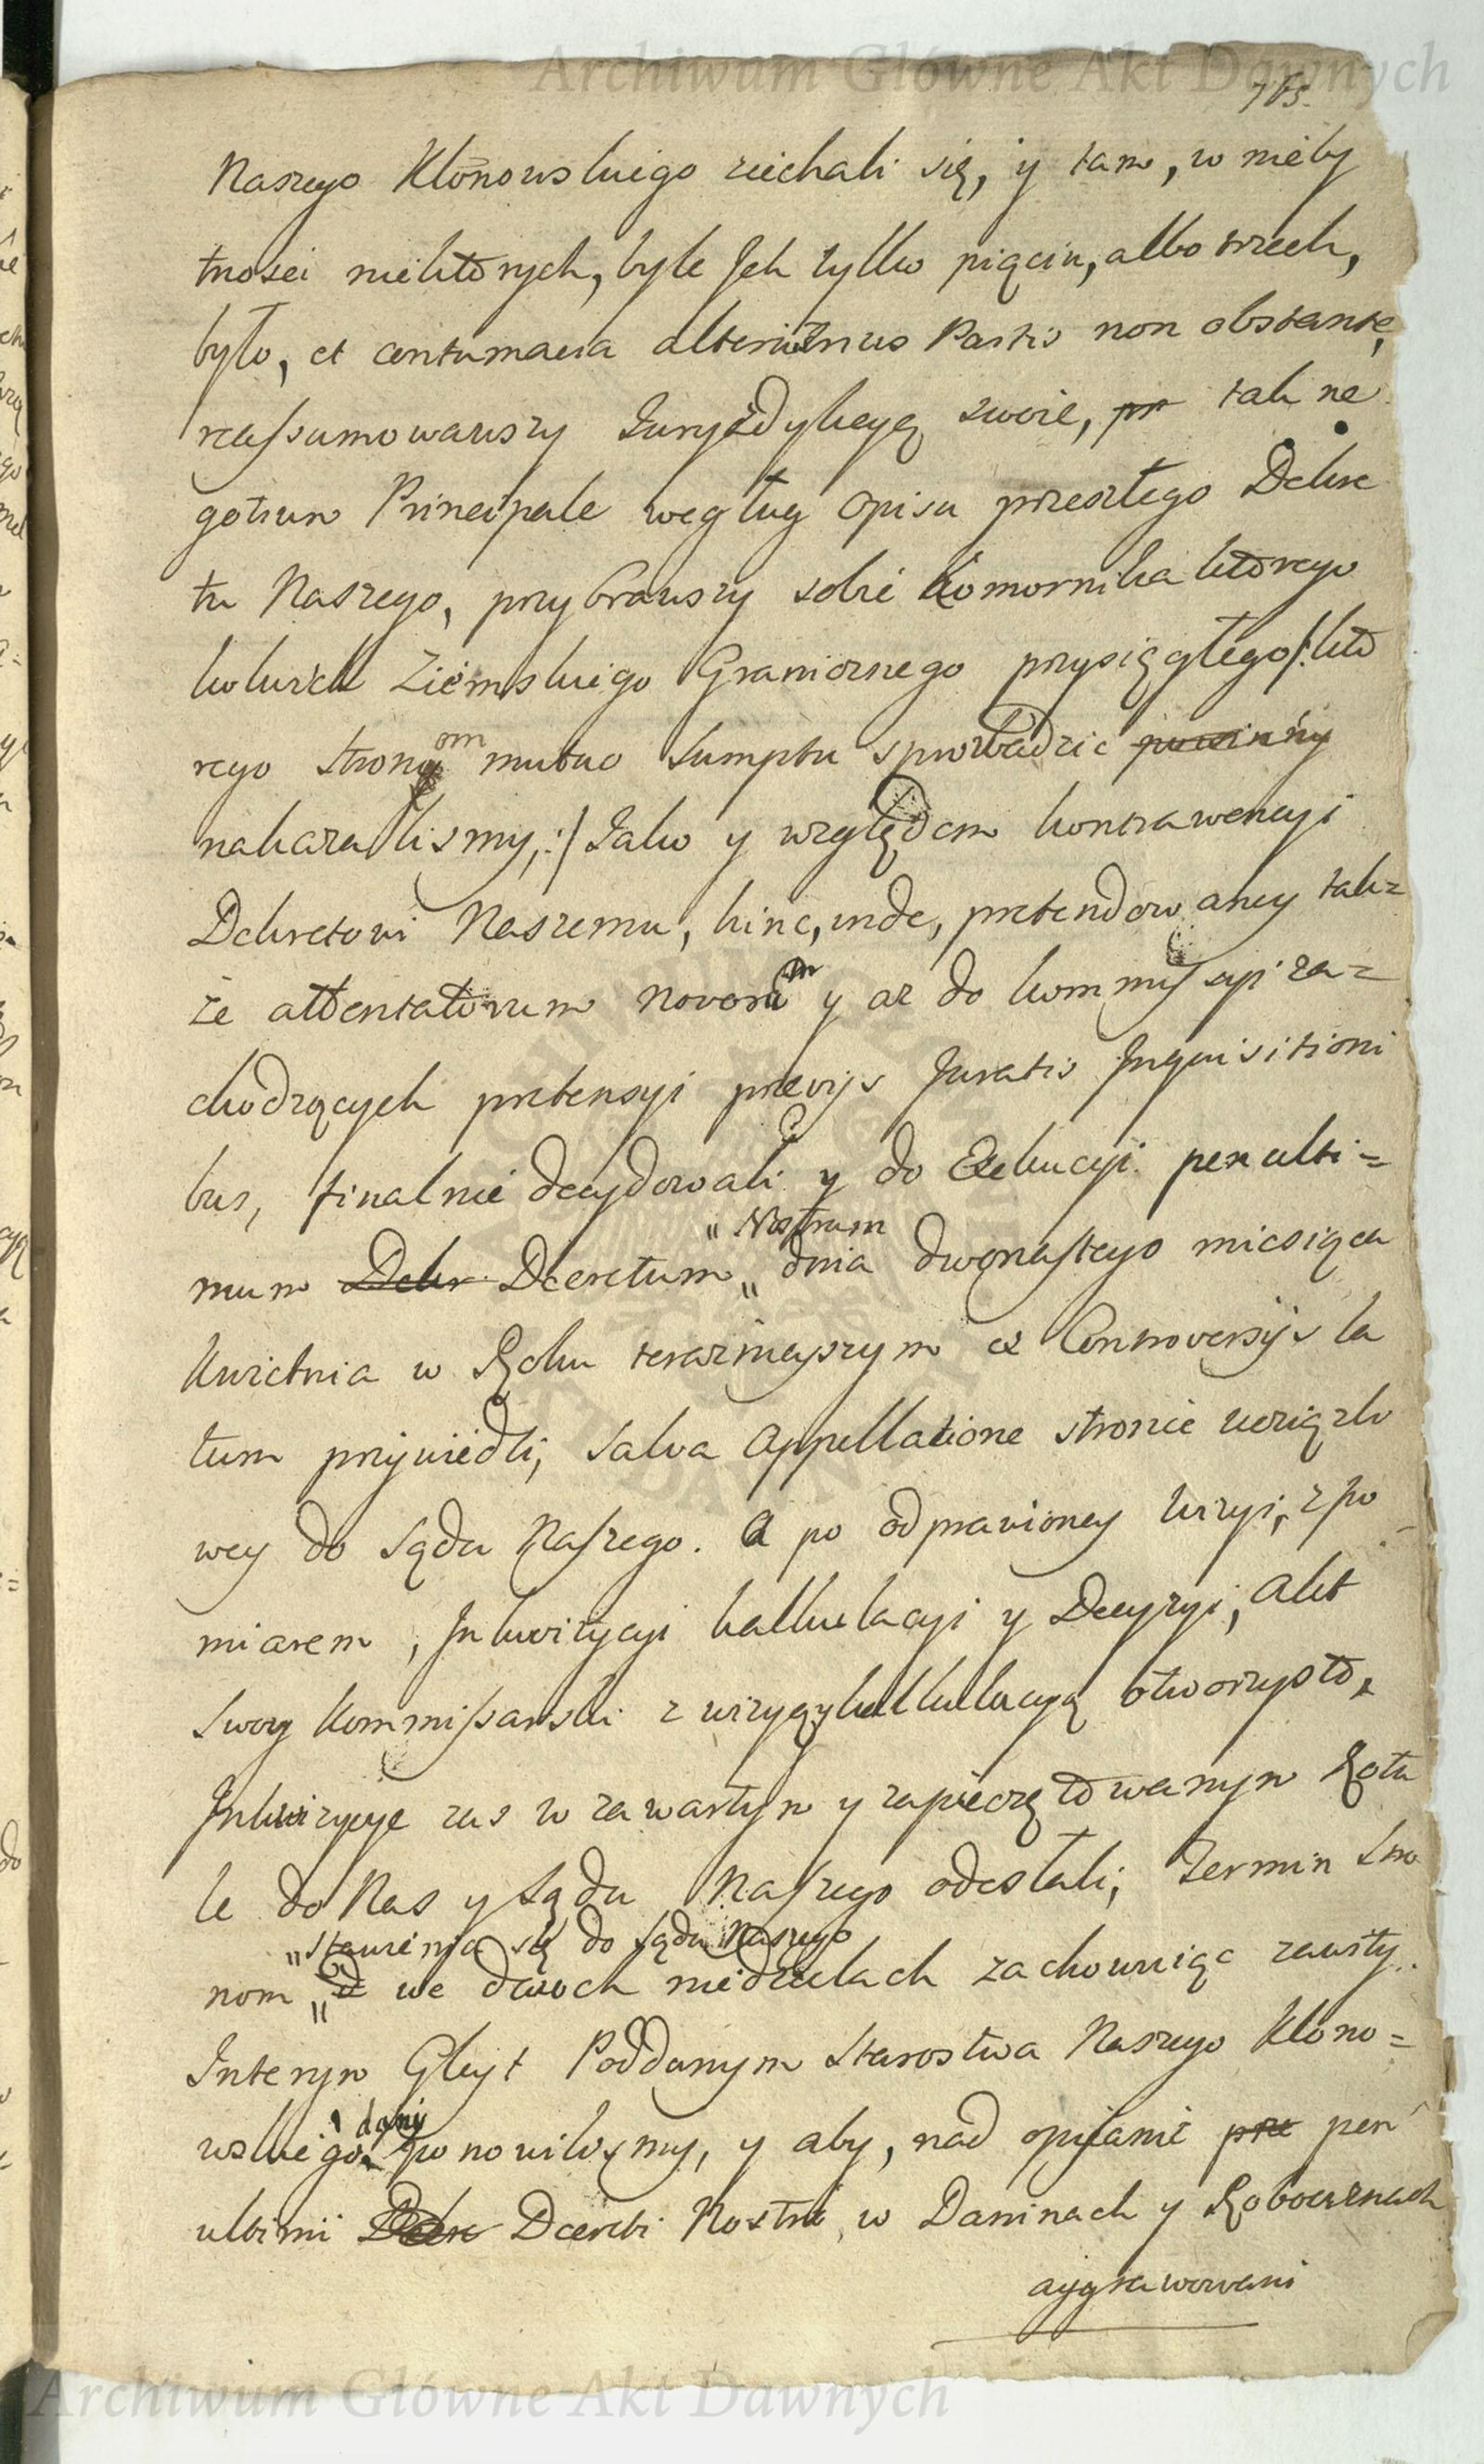 Archiwum Główne Akt Dawnych
765.
Naszego Klonowskiego ziechali się, y tam, w nieby
tnosci niektorych, byle Jch tylko pięciu, albo trzech,
było, et contumacia alterutrius Partis non obstante,
reassumowawszy Juryzdykcyą swoie, pr tak ne
gotium Principale wegług opisu przeszłego Dekre
tu Naszego, przybrawszy sobie Komornika ktorego
kolwiek Ziemskiego Granicznego przysięgłego/: kto
rego stronom mutuo sumptu sprowadzic powinny
nakazalismy, :/ Jako y względem kontrawencyi
Dekretowi Naszemu, hinc, inde, pretendowaney tak=
że attentatorum novorum y az do kommissyi za=
chodzących pretensyi previjs Juratis Jnquisitioni
bus, finalnie decydowali y do Exekucyi penulti=
mum Dekr Decretum „ dnia dwonastego miesiąca
„ Nostrum
Kwietnia w Roku teraznieyszym ex Controversijs la
tum przywiedli, salva Appellatione stronie uciążli
wey do sądu Naszego. A po odprawioney wizyi, z po
miarem, Jnkwizycyi kalkulacyi y Decyzyi, Akt
swoy Kommissarski z wizyą y kalkulacyą otworzysto,
Jnkwizycye zas w zawartym y zapieczętowanym Rotu
le do Nas y sądu Naszego odesłali, Termin stro
„ stawienia się do sądu Naszego
nom „ we dwoch niedzielach zachowuiąc zawity.
Interym Gleyt Poddanym Starostwa Naszego Klono=
dany
wskiego ponowilismy, y aby, nad opisanie pre pen
ultimi Dekre Decreti Nostri, w Daninach y Robociznach
aggrawowani
Archiwum Główne Akt Dawnych